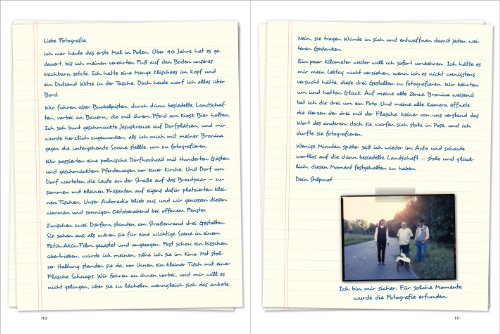 Liebe Fotografie,
ich war heute das erste Mal in Polen. Über 40 Jahre hat es ge-
dauert, bis ich meinen vereisten Fuß auf den Boden unseres
Nachbarn setzte. Ich hatte eine Menge Klischees im Kopf und
ein Dutzend Witze in der Tasche. Doch heute warf ich alles über
Bord.
Wir fuhren über Buckelpisten, durch dünn besiedelte Landschaf-
ten, vorbei an Bauern, die mit ihrem Pferd am Kiosk Bier holten.
Ich sah bunt geschmückte Jesuskreuze auf Dorfplätzen, und mir
wurde herzlich zugewunken, als ich mich mit meiner Bronica
gegen die untergehende Sonne stellte, um zu fotografieren.
Wir passierten eine polnische Dorfhochzeit mit Hunderten Gästen
und geschmücktem Pferdewagen vor einer Kirche. Und Dorf um
Dorf warteten die Leute an der Straße auf das Brautpaar – zu-
sammen mit kleinen Präsenten auf eigens dafür platzierten klei-
nen Tischen. Unser Autoradio blieb aus, und wir genossen diesen
warmen und sonnigen Oktoberabend bei offenem Fenster.
Zwischen zwei Dörfern standen am Straßenrand drei Gestalten.
Sie sahen aus, als wären sie für eine wichtige Szene in einem
Fatih-Akin-Film gecastet und angezogen. Fast schon ein bisschen
übertrieben, würde ich meinen, sähe ich sie im Kino. Mit stol-
zer Haltung standen sie da, vor ihnen ein kleiner Tisch mit einer
Flasche Schnaps. Wir fuhren an ihnen vorbei, und mir will es
nicht gelingen, über sie zu lächeln, wenngleich sich das anböte.
110
Nein, sie tragen Würde in sich und entwaffnen damit jeden wei-
teren Gedanken.
Ein paar Kilometer weiter will ich sofort umdrehen. Ich hätte es
mir mein Lebtag nicht verziehen, wenn ich es nicht wenigstens
versucht hätte, diese drei Gestalten zu fotografieren. Wir kehrten
um und hatten Glück. Auf meine alte Zenza Bronica weisend
bat ich die drei um ein Foto. Und meine alte Kamera öffnete
die Herzen der drei mit der Flasche. Keiner von uns verstand das
Wort des anderen, doch sie warfen sich stolz in Pose, und ich
durfte sie fotografieren.
Wenige Minuten später saß ich wieder im Auto und schaute
wortlos auf die dünn besiedelte Landschaft – stolz und glück-
lich, diesen Moment festgehalten zu haben.
Dein Stilpirat
Ich bin mir sicher: Für solche Momente
wurde die Fotografie erfunden.
111